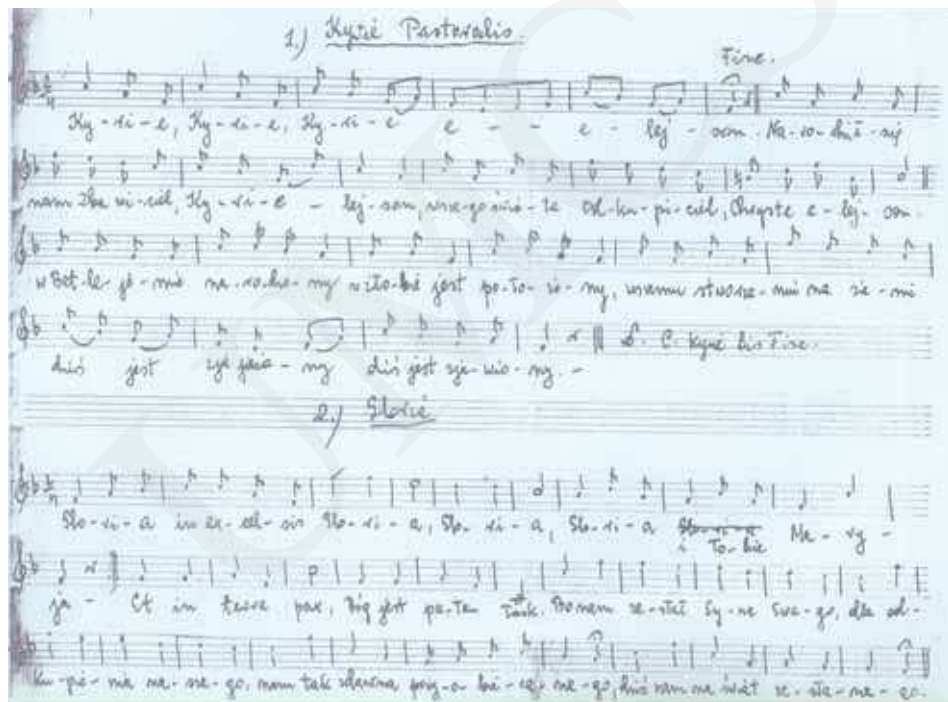 1.) Kyrie Pastoralis.
Fine.
Ky-ri-e, Ky-ri-e, Ky-ri-e e - - e - lej - son. Na-ro-dził-się
nam Zba wi-ciel, Ky-ri-e - lej-son, wsze-go świa-ta Od-ku-pi-ciel, Chryste e-lej-son.
w Bet-le-je-mie na-ro-dzo-ny w żło-bie jest po-ło-żo-ny, wszemu stworze-niu na zie-mi
dziś jest zja-wio-ny dziś jest zja-wio-ny. - D. C. Kyrie bis Fine.
2.) Gloria
Glo-ri-a in ex-cel-sis Glo-ri-a, Glo-ri-a, Glo-ri-a i To-bie Ma-ry-
ja - Et in terra pax, Bóg jest pa-ten Bo nam ze-słał Sy-na Swe-go, dla od-
ku-pie-nia na-sze-go, nam tak dawna przy-o bie-ca-ne-go, dziś nam na świat ze-sła-ne-go.
UMCS